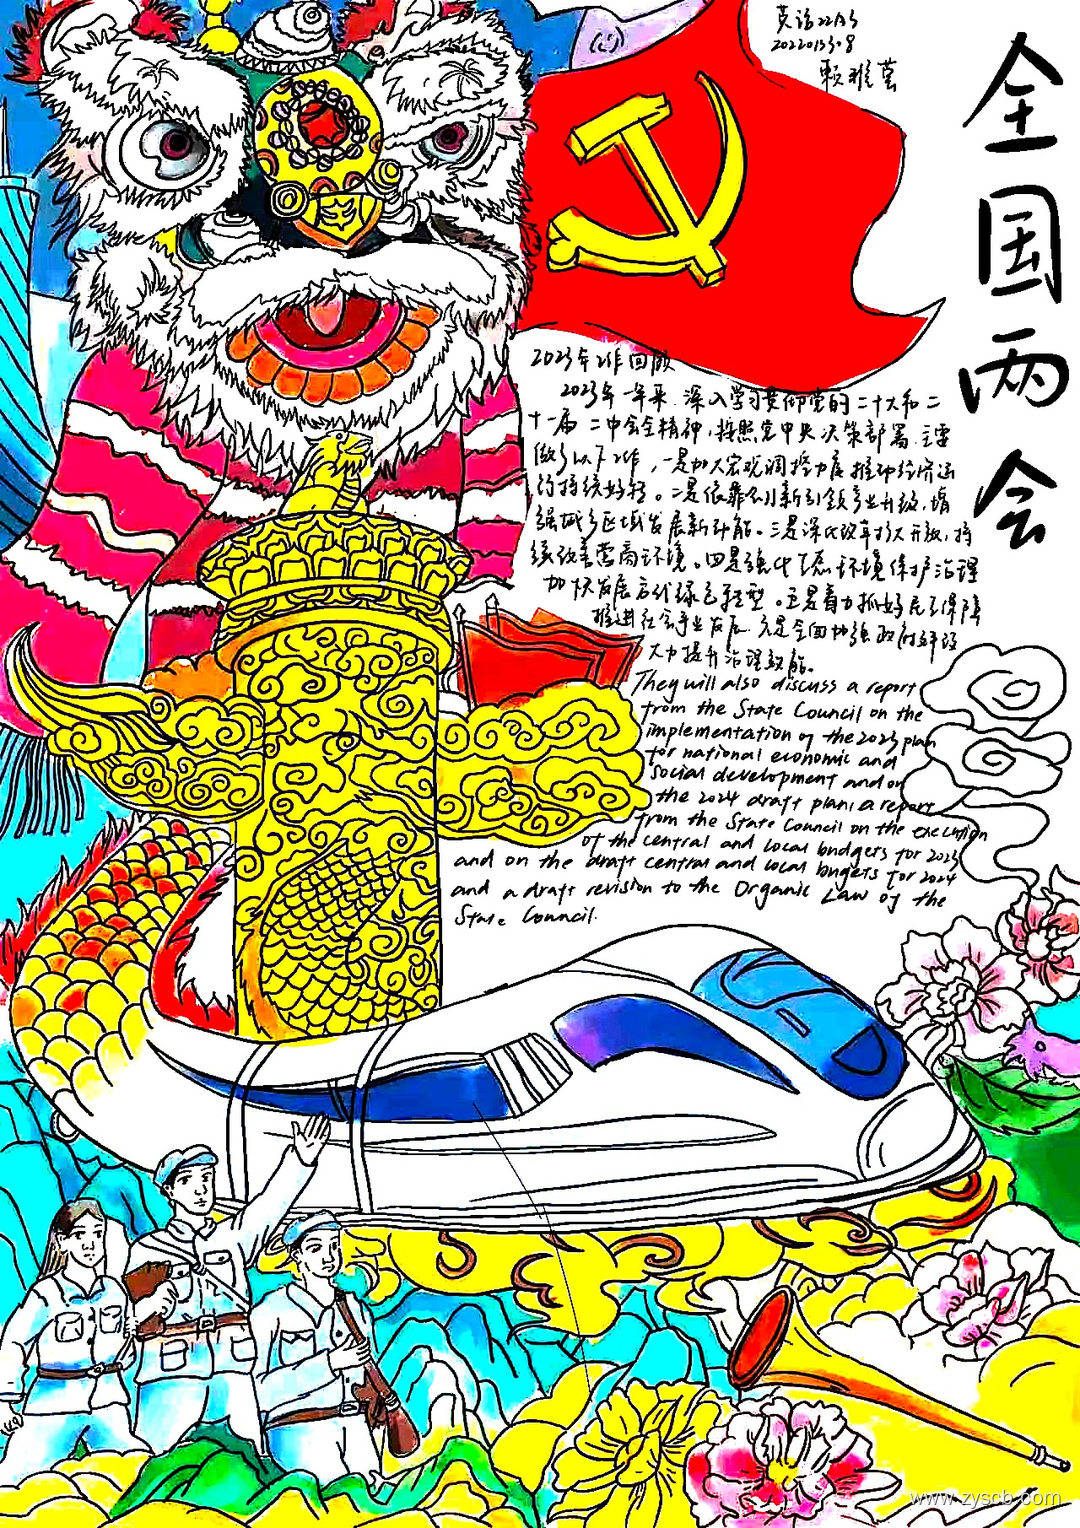 英语22A3
2022013308
赖雅芸
全国两会
2023年工作回顾
2023年一年来,深入学习贯彻党的二十大和二
十一届二中全会精神,按照党中央决策部署,主要
做了以下工作,一是加大宏观调控力度推动经济运
行持续好转。二是依靠创新引领产业升级,增
强城乡区域发展新动能。三是深化改革扩大开放,持
续改善营商环境。四是强化生态环境保护治理
加快发展方式绿色转型。五是着力抓好民生保障
推进社会事业发展 六是全面加强政府建设
大力提升治理效能。
They will also discuss a report
from the State Council on the
implementation of the 2023 plan
for national economic and
social development and on
the 2024 draft plan; a report
from the State Council on the execution
of the central and local budgets for 2023
and on the draft central and local bugets for 2024
and a draft revision to the Organic Law of the
State Council.
www.zyscb.com